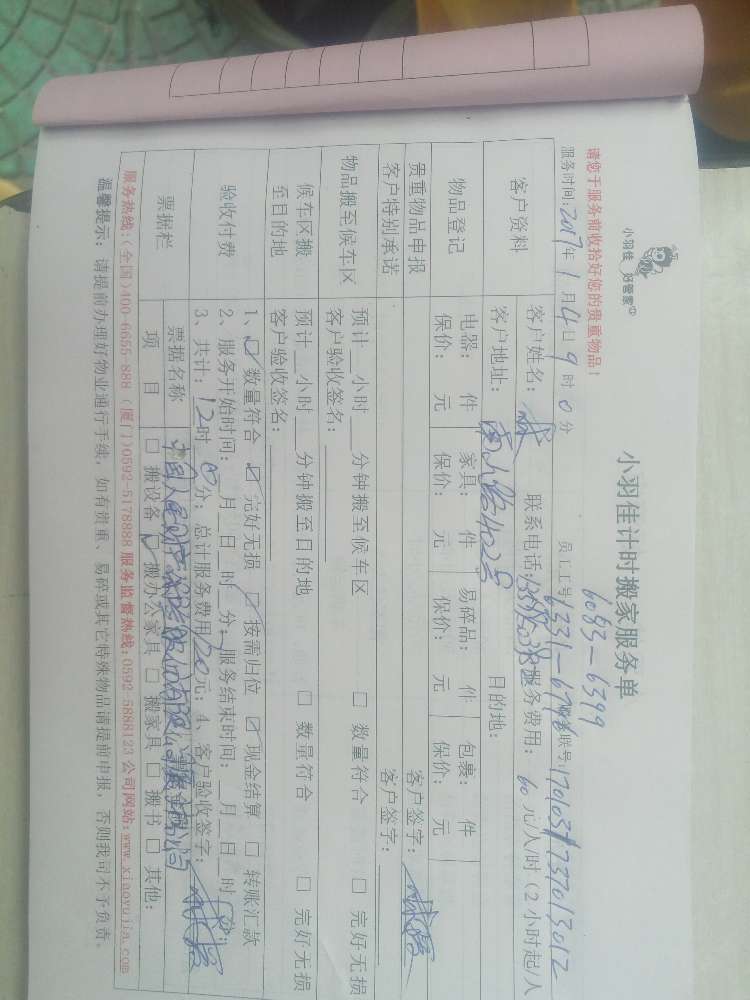 小羽佳 好管家
小羽佳计时搬家服务单
6083-6399
请您于服务前收拾好您的贵重物品！
员工工号 6331-6796 联号:
服务时间:2017年1月4日9时0分
客户资料
客户姓名: 联系电话: 服务费用: 60元/人/时（2小时起/人
客户地址: 南山路402号 目的地:
物品登记
电器: 件 家具: 件 易碎品: 件 包裹: 件
保价: 元 保价: 元 保价: 元 保价: 元
贵重物品申报 客户签字:
客户特别承诺 客户签字:
物品搬至候车区
预计 小时 分钟搬至候车区 □ 数量符合 □ 完好无损
客户验收签名:
候车区搬至目的地
预计 小时 分钟搬至目的地 □ 数量符合 □ 完好无损
客户验收签名:
验收付费
1、☑ 数量符合 ☑ 完好无损 ☑ 按需归位 ☑ 现金结算 □ 转账汇款
2、服务开始时间: 月 日 时 分; 服务结束时间: 月 日 时
3、共计: 12时 0分; 总计服务费用 120元; 4、客户验收签字:
票据栏
票据名称
项目 □ 搬设备 ☑ 搬办公家具 □ 搬家具 □ 搬书 □ 其他:
服务热线:(全国)400-6655-888 (厦门)0592-5178888 服务监督热线:0592-5888123 公司网站:www.xiaoyujia.com
温馨提示: 请提前办理好物业通行手续, 如有贵重、易碎或其它特殊物品请提前申报, 否则我司不予负责。